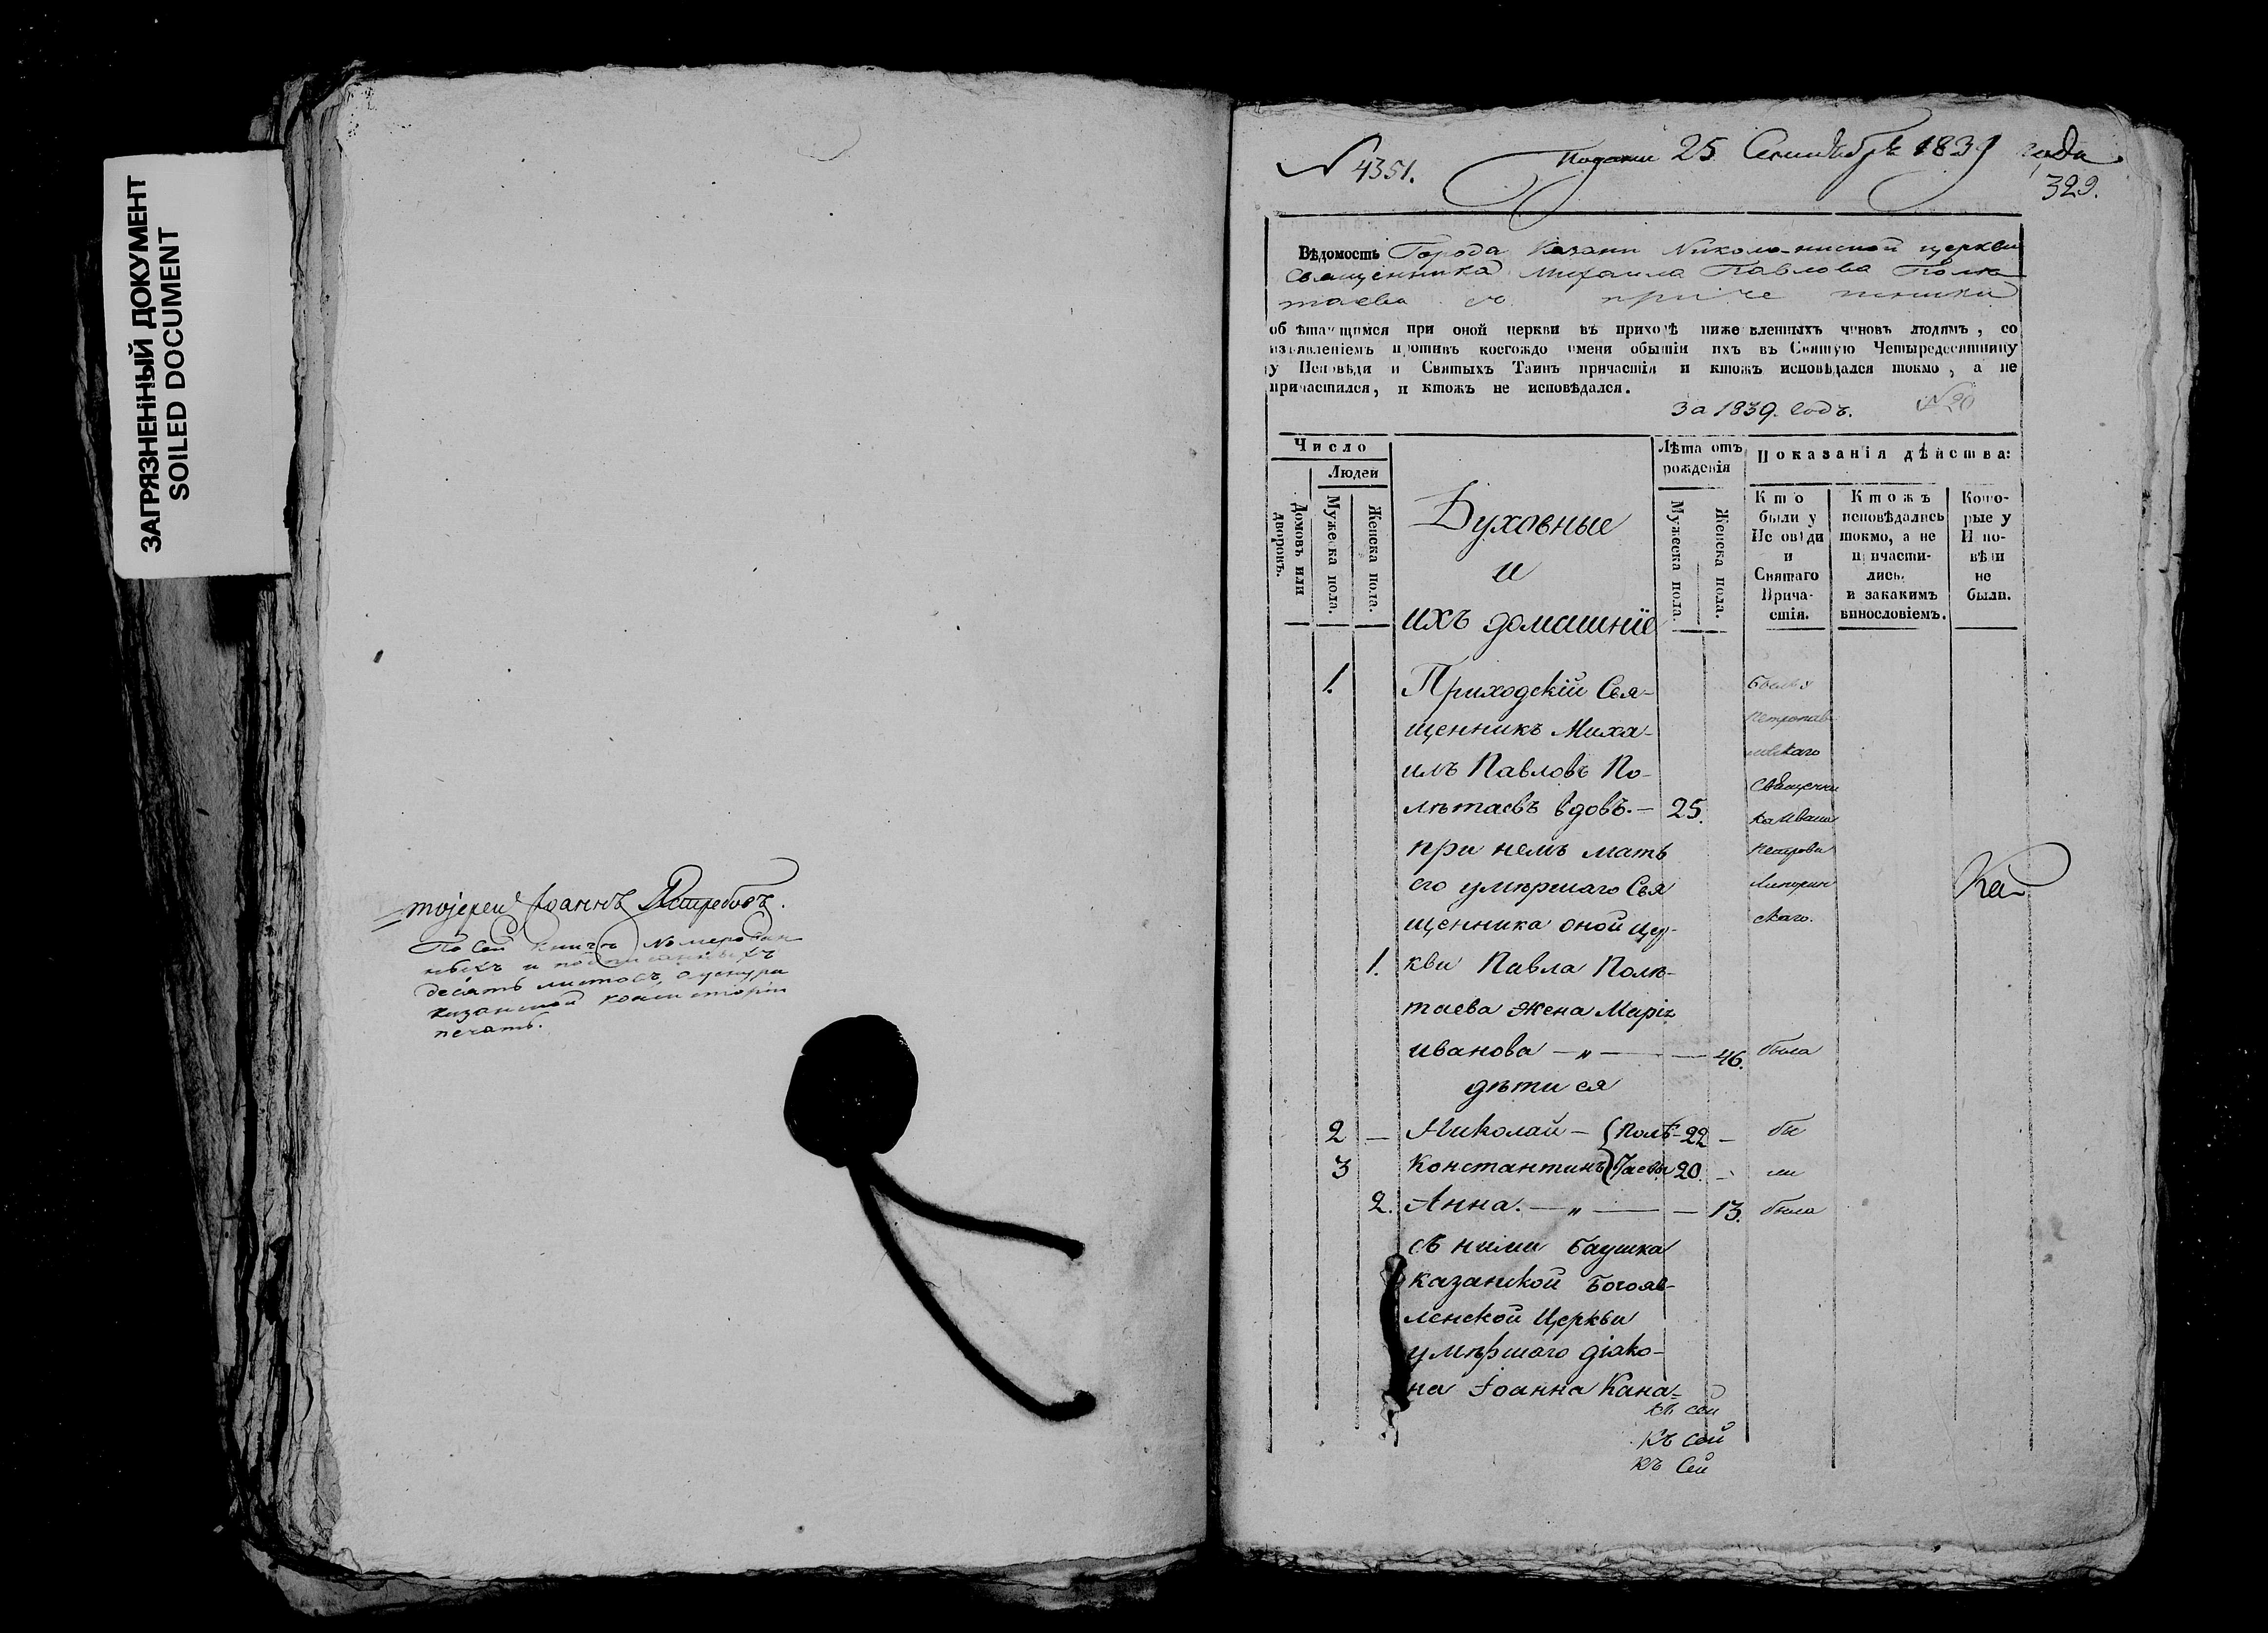 ЗАГРЯЗНЕННЫЙ ДОКУМЕНТ
SOILED DOCUMENT
тоіерей Іоаннъ Ястребовъ.
По сей книгѣ номерован
ныхъ и
десять листовъ,
казанской консисторіи
печать.
№ 4351.
25 Сентября 1839 года
329.
Вѣдомость Города Казани Николо-нисской церкви
Священника Михаила Павлова Полѣ
таева съ причетники
при оной церкви въ приходѣ ниже вленныхъ чиновъ людямъ, со
изъявленіемъ противъ коегождо имени бытіи ихъ въ Святую Четыредесятницу
у Исповѣди и Святыхъ Таинъ причастія и ктожъ исповѣдался токмо, а не
причастился, и ктожъ не исповѣдался.
За 1839. годъ. №20
Число
Людей
Домовъ или дворовъ.
Мужеска пола.
Женска пола.
Духовные
и
ихъ домашніе
Лѣта отъ
рожденія
Мужеска пола.
Женска пола.
Показанія дѣйства:
Кто
были у
Исповѣди
и
Святаго
Прича-
стія.
Ктожъ
исповѣдались
токмо, а не
причасти-
лись.
и закакимъ
винословіемъ.
Кото-
рые у
Испо-
вѣди
не
были.
1. Приходскій Свя-
щенникъ Миха-
илъ Павловъ По-
лѣтаевъ вдовъ.— 25.
при немъ мать
его умѣршаго Свя
щенника оной цер-
1. кви Павла Полѣ-
таева жена Марія
Иванова —„— — 46. была
дѣти ея
2 — Николай — {Полѣ- 22 — бы
3 Константинъ}таевы 20. — ли
2. Анна. —„— — 13. была
съ ними баушка
казанской Богояв-
ленской Церкви
умѣршаго діако-
на Іоанна Кана-
былъ у
Петропав
ловскаго
Священни
ка Ивана
Петрова
скаго.
Ка
къ сей
къ сей
къ сей